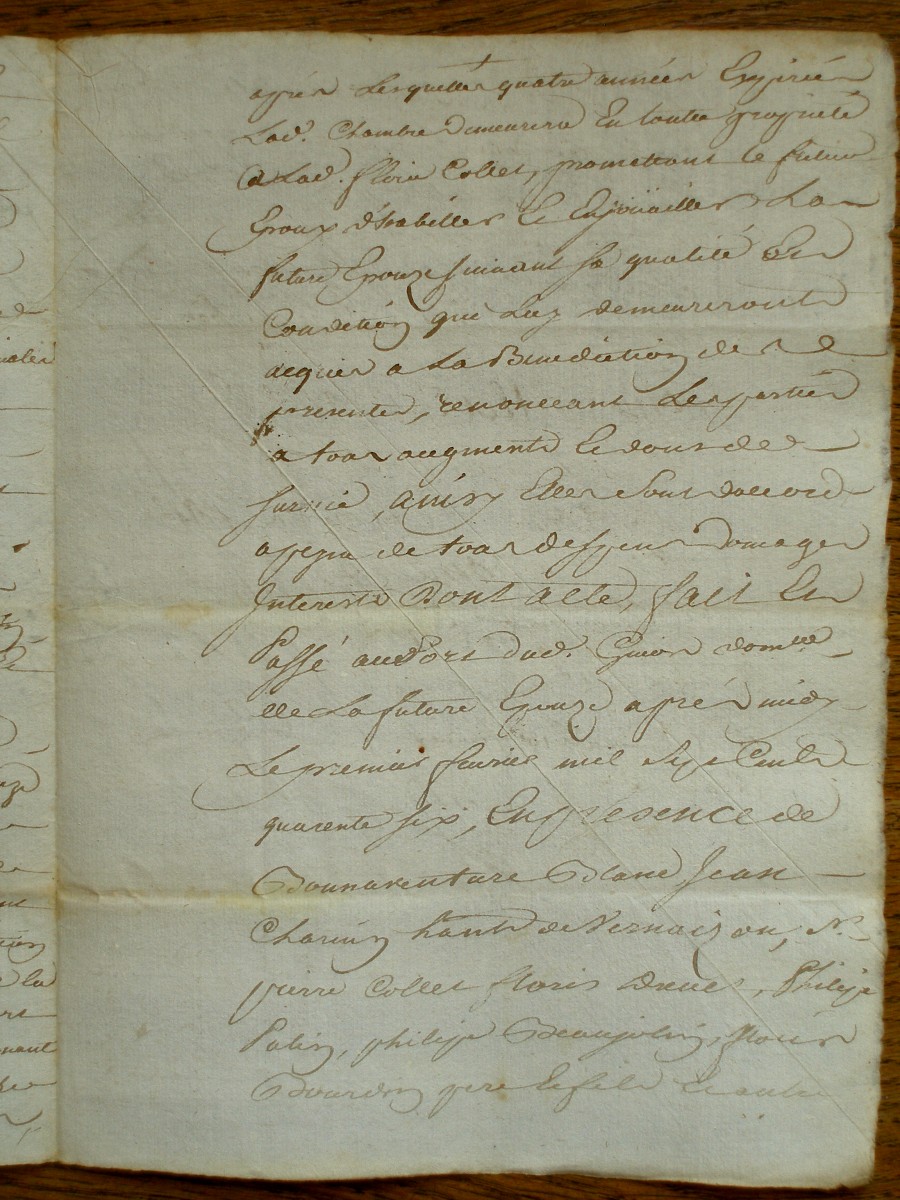 après Lesquelles quatre années Expirées
Lad. Chambre demeurera En toutte propriété
a Lad. florie Collet, promettant le futur
Epoux d'habiller Et Enjoüailler La
future Epouze suivant sa qualité Et
Condition que Luy demeureront
acquis a La Benediction des
presentes, renonceant Les parties
a tous augments Et dons de
survie, ainsy Elles sont daccord
a peyne de tous despens domages
Interests Dont acte, fait Et
Passé au Port dud. Guion domlle
de La future Epouze après midy
Le premier fevrier mil sept Cents
quarente six, En presence de
Bonnaventure Blanc Jean
Charvin hants de Vernaison, Sr.
pierre Collet floris Dreves, Philipe
Patin, philipe Beaujolin, floris
Bourdin pere Et fils Et autre